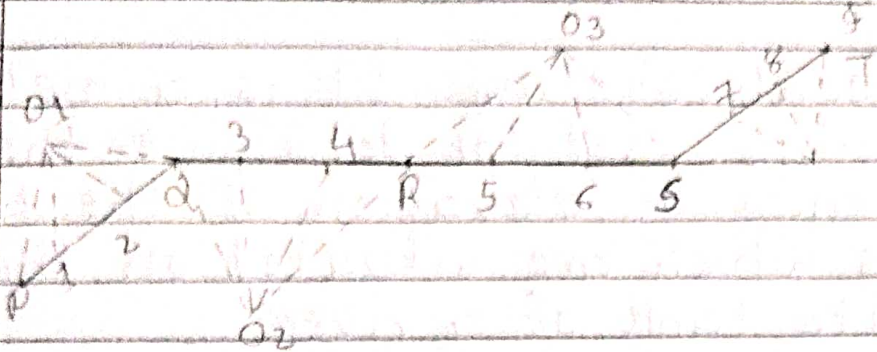 O3
9
8
T
7
O1
3
4
Q
R
5
6
S
2
P
1
O2